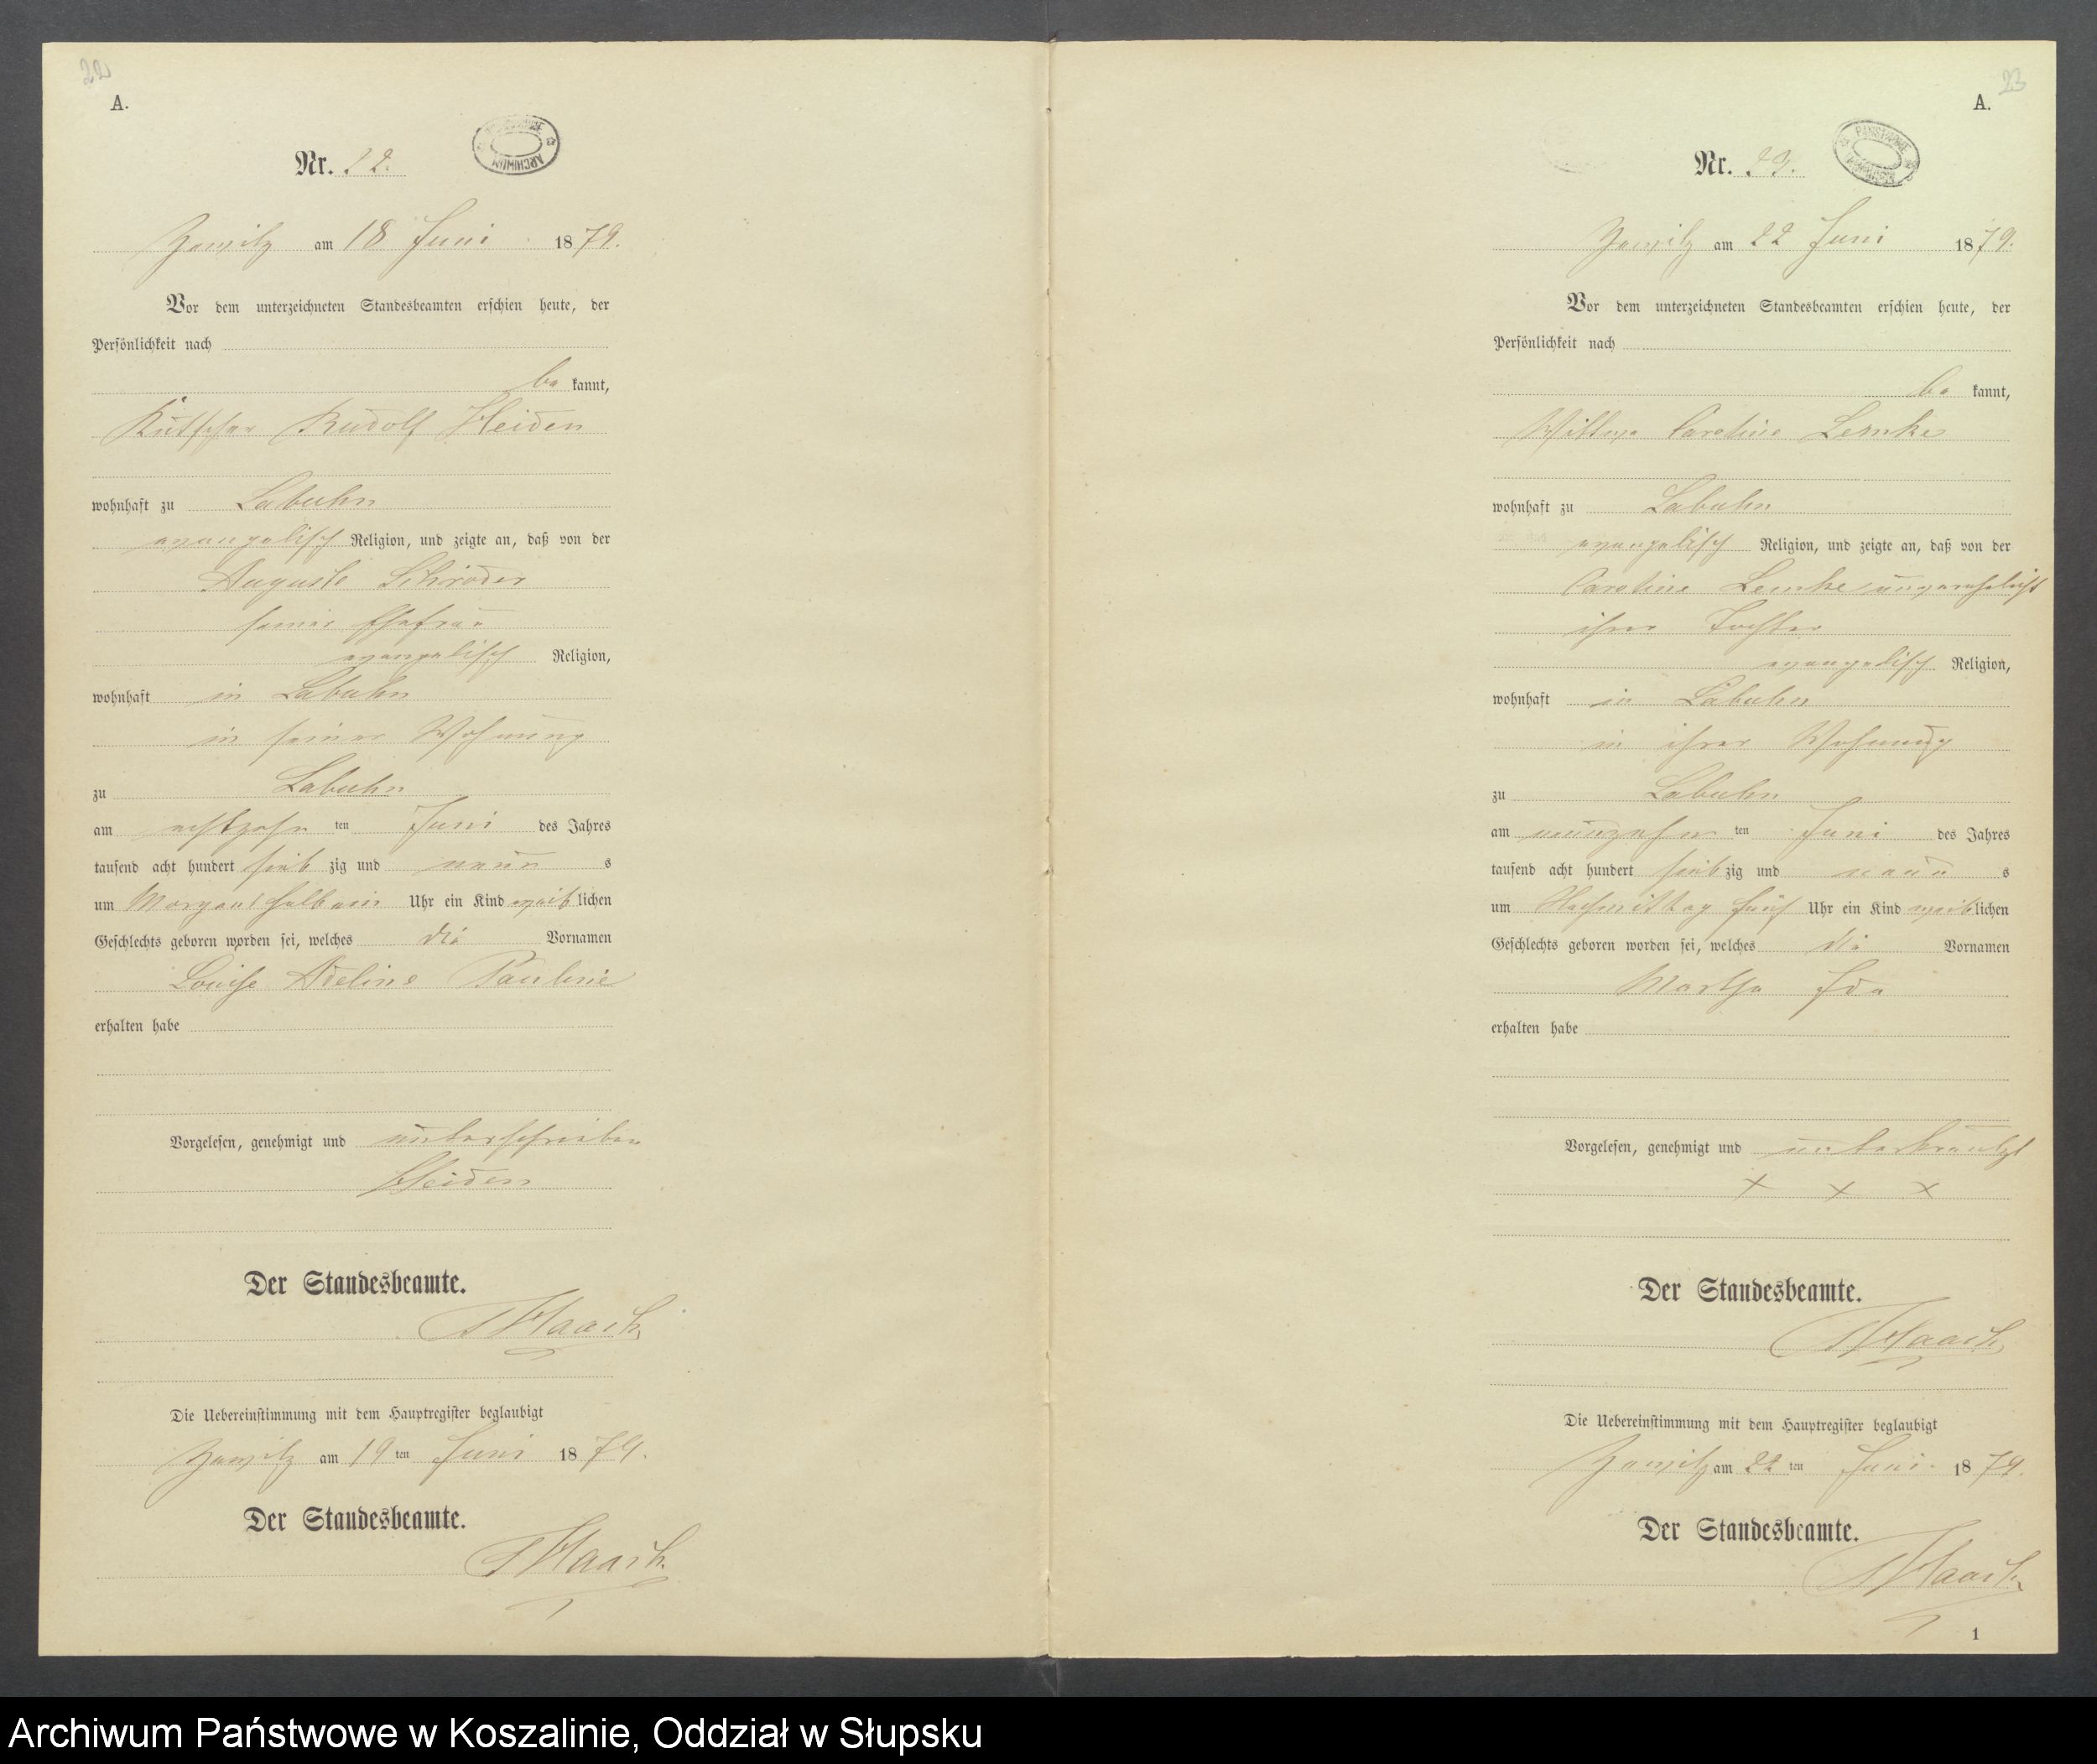 22
A.
Nr. 22.
Zewitz am 18 Juni 1879.
Vor dem unterzeichneten Standesbeamten erschien heute, der
Persönlichkeit nach
be kannt,
Kutscher Rudolf Heiden
wohnhaft zu Labuhn
evangelisch Religion, und zeigte an, daß von der
Auguste Schröder
seiner Ehefrau
evangelisch Religion,
wohnhaft in Labuhn
in seiner Wohnung
zu Labuhn
am achtzehn ten Juni des Jahres
tausend acht hundert sieb zig und neun s
um Morgens halb ein Uhr ein Kind weib lichen
Geschlechts geboren worden sei, welches die Vornamen
Louise Adeline Pauline
erhalten habe
Vorgelesen, genehmigt und unterschrieben
Heiden
Der Standesbeamte.
Haack
Die Uebereinstimmung mit dem Hauptregister beglaubigt
Zewitz am 19 ten Juni 1879.
Der Standesbeamte.
Haack
23
A.
Nr. 23.
PAŃSTWOWE ARCHIWUM
Zewitz am 22 Juni 1879.
Vor dem unterzeichneten Standesbeamten erschien heute, der
Persönlichkeit nach
be kannt,
Wittwe Caroline Lemke
wohnhaft zu Labuhn
evangelisch Religion, und zeigte an, daß von der
Caroline Lemke unverehelicht
ihrer Tochter
evangelisch Religion,
wohnhaft in Labuhn
in ihrer Wohnung
zu Labuhn
am neunzehn ten Juni des Jahres
tausend acht hundert sieb zig und neun s
um Nachmittag fünf Uhr ein Kind weib lichen
Geschlechts geboren worden sei, welches die Vornamen
Martha Ida
erhalten habe
Vorgelesen, genehmigt und unterkreutzt
x x x
Der Standesbeamte.
Haack
Die Uebereinstimmung mit dem Hauptregister beglaubigt
Zewitz am 22 ten Juni 1879.
Der Standesbeamte.
Haack
1
Archiwum Państwowe w Koszalinie, Oddział w Słupsku